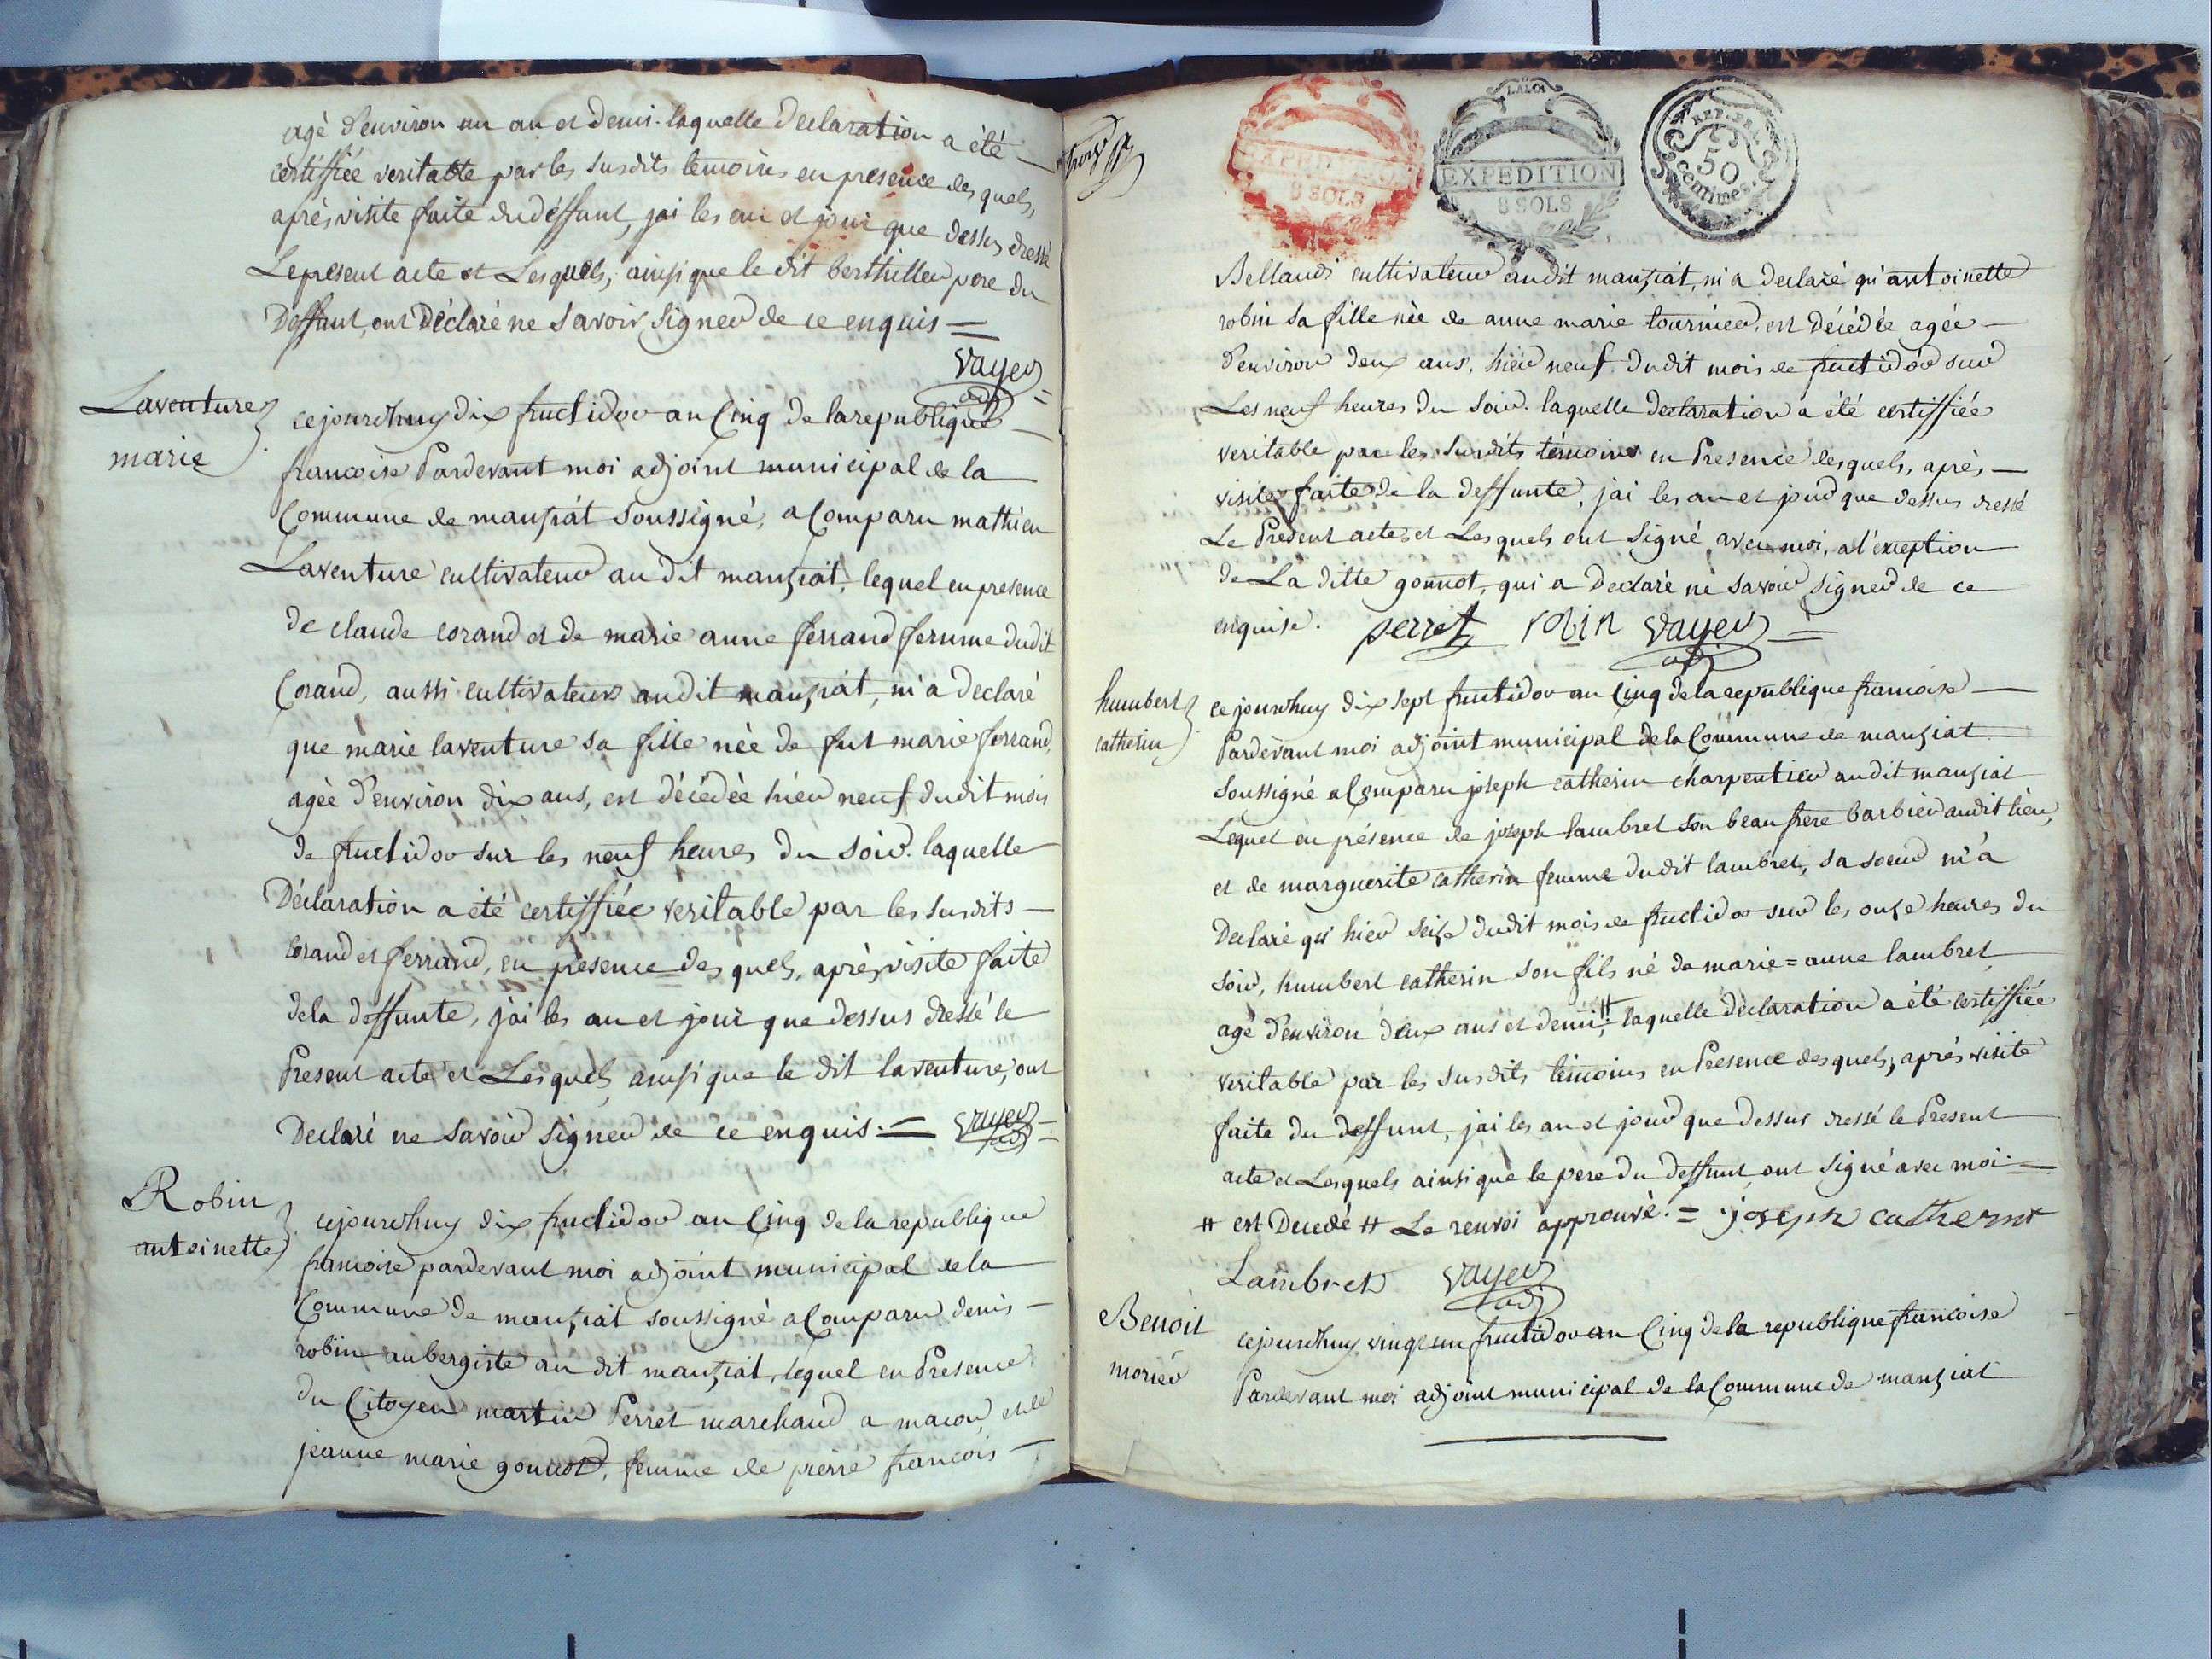 agé d'environ un an et demi. laquelle declaration a été
certiffiée veritable par les susdits temoins en presence desquels,
après visite faite du deffunt, j'ai les an et jour que dessus dressé
Le present acte et Lesquels, ainsi que le dit berthillier pere du
Deffunt, ont Déclaré ne savoir signer de ce enquis =
vayer
adj
Laventure
marie
cejourdhuy dix fructidor an Cinq de la republique
francoise Pardevant moi adjoint municipal de la
Commune de manziat soussigné, a Comparu mathieu
Laventure cultivateur au dit manziat, lequel en presence
de claude corand et de marie anne ferrand femme dudit
Corand, aussi cultivateurs audit manziat, m'a declaré
que marie laventure sa fille née de fut marie ferrand,
agée d'environ dix ans, est décédée hier neuf dudit mois
de fructidor sur les neuf heures du soir. laquelle
Déclaration a été certiffiée veritable par les susdits
corand et ferrand, en presence desquels, après visite faite
de la deffunte, j'ai les an et jour que dessus dressé le
Present acte et Lesquels, ainsi que le dit laventure, ont
Declaré ne savoir signer de ce enquis. = vayer
adj
Robin
antoinette
cejourdhuy dix fructidor an Cinq de la republique
francoise pardevant moi adjoint municipal de la
Commune de manziat soussigné a Comparu denis
robin aubergiste au dit manziat, lequel en Presence
du Citoyen martin Perret marchand a macon, et de
jeanne marie gonnot, femme de pierre francois
LA LOI
EXPEDITION
8 SOLS
EXPEDITION
8 SOLS
REP. FRA.
50
centimes.
Bellandi cultivateur audit manziat, m'a declaré qu'antoinette
robin sa fille née de anne marie tournier, est décédée agée
d'environ deux ans, hier neuf dudit mois de fructidor sur
Les neuf heures du soir. laquelle declaration a été certiffiée
veritable par les susdits témoins en Presence desquels, après
visite faite de la deffunte, j'ai les an et jour que dessus dressé
Le Present acte et Lesquels ont signé avec moi, a l'exception
de La ditte gonnot, qui a Declaré ne savoir signer de ce
enquise. perret robin vayer =
adj
humbert
catherin
cejourdhuy dix sept fructidor an Cinq de la republique francoise
Pardevant moi adjoint municipal de la Commune de manziat
soussigné a Comparu joseph catherin charpentier audit manziat
Lequel en présence de joseph lambret son beau frere barbier audit lieu,
et de marguerite catherin femme dudit lambret, sa soeur m'a
Declaré qu'hier seize dudit mois de fructidor sur les onze heures du
soir, humbert catherin son fils né de marie=anne lambret
agé d'environ deux ans et demi, # laquelle déclaration a été certiffiée
veritable par les susdits témoins en Presence desquels, après visite
faite du deffunt, j'ai les an et jour que dessus dressé le Present
acte et Lesquels ainsi que le pere du deffunt ont signé avec moi =
# est Decedé # Le renvoi approuvé. = joseph catherint
Lambret vayer
adj
Benoit
morier
cejourdhuy vingt un fructidor an Cinq de la republique francoise
Pardevant moi adjoint municipal de la Commune de manziat